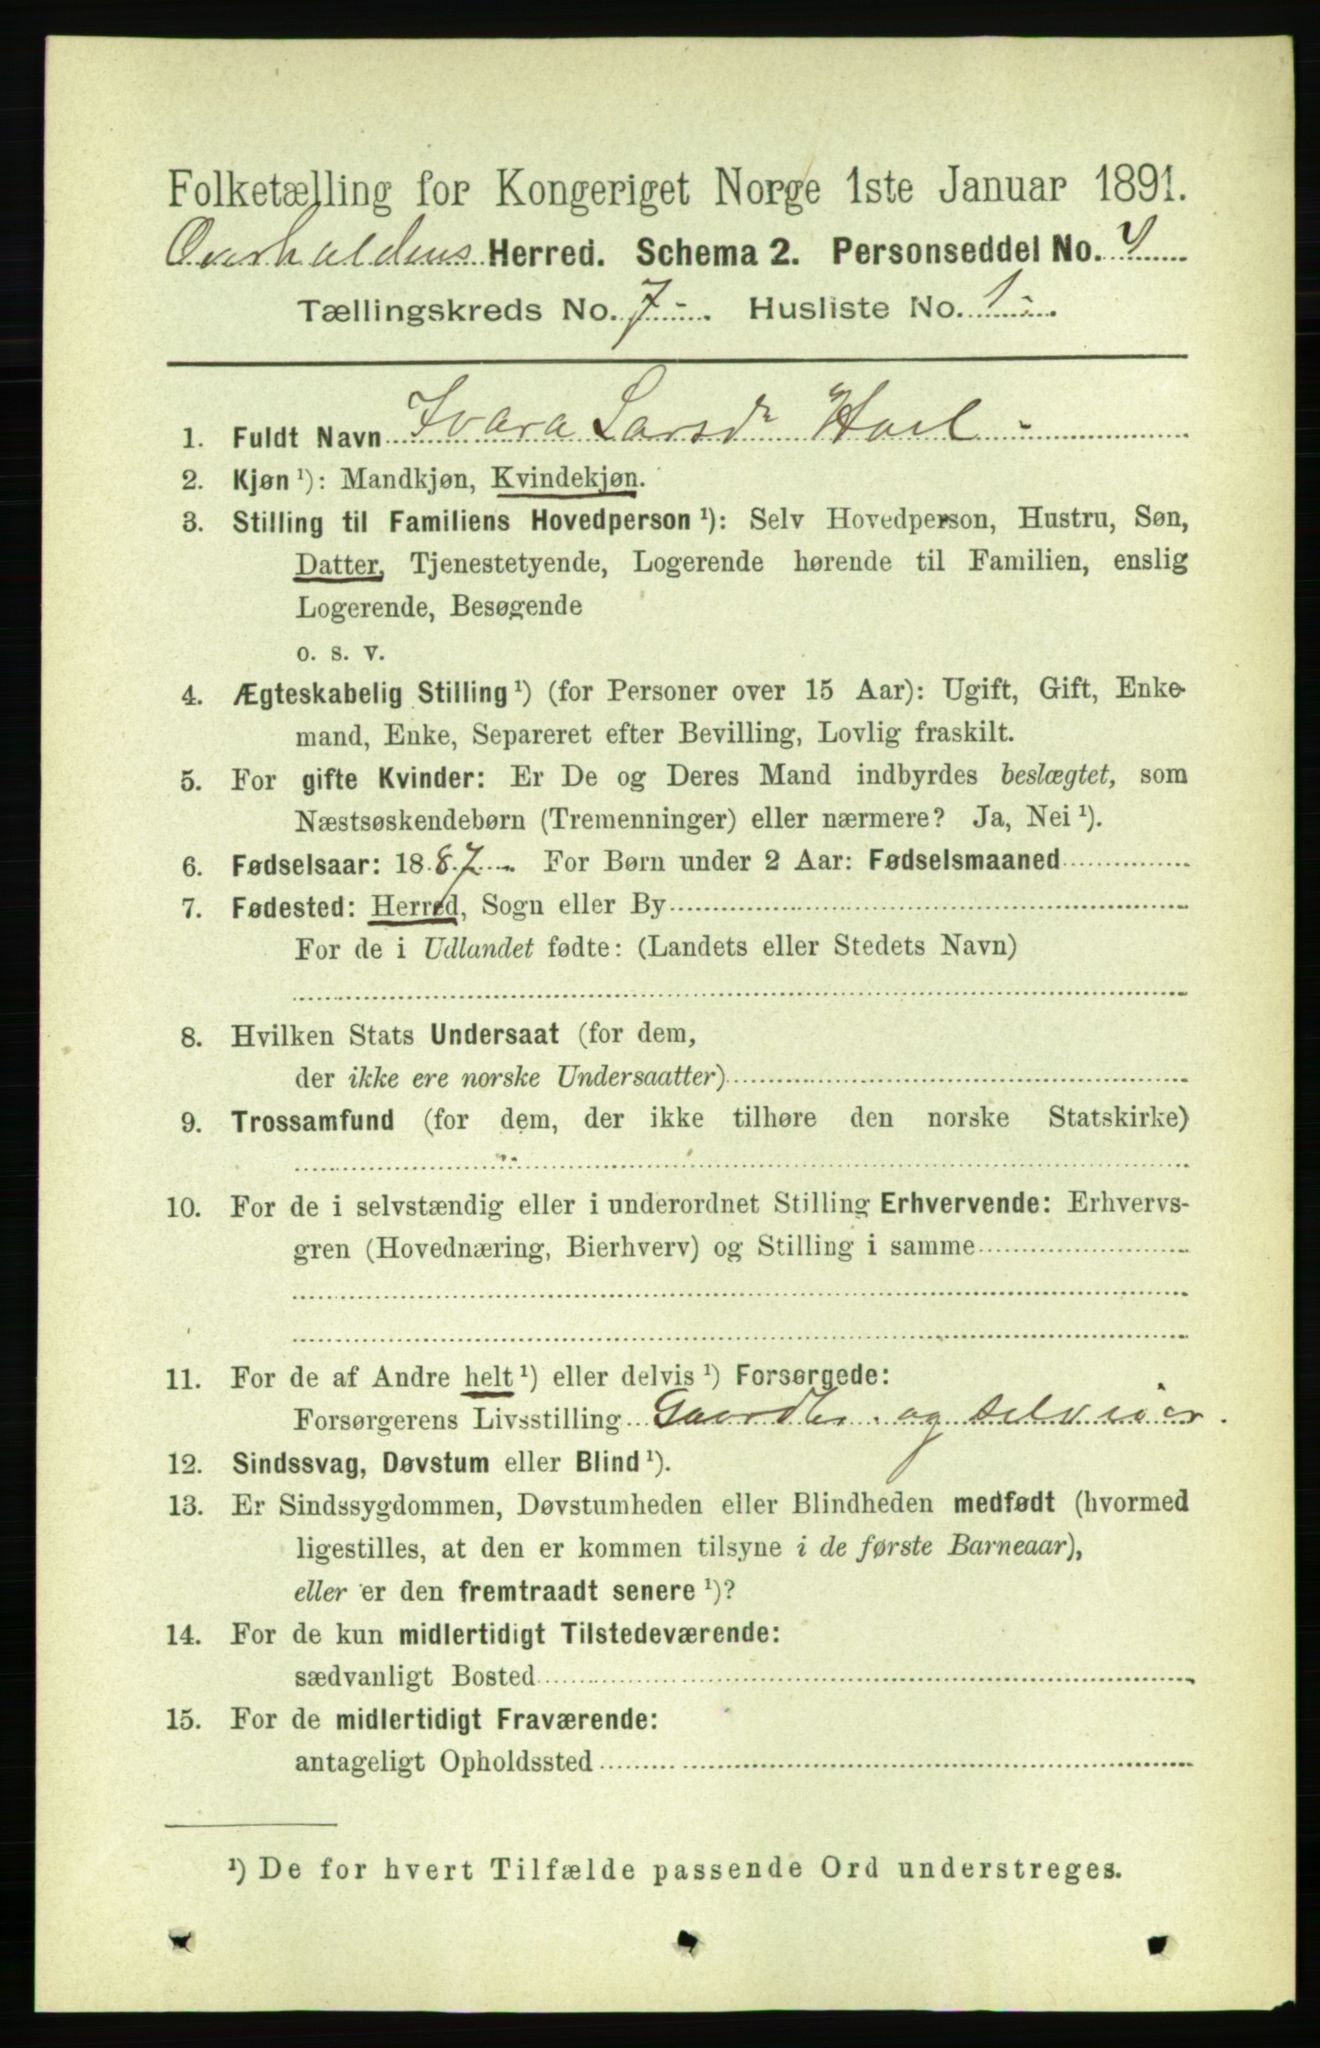 Folketælling for Kongeriget Norge 1ste Januar 1891.
Overhaldens Herred. Schema 2. Personseddel No. 4
Tællingskreds No. 7 - . Husliste No. 1 - .
1. Fuldt Navn Ivara Larsdr Hoel -
2. Kjøn ¹): Mandkjøn, Kvindekjøn.
3. Stilling til Familiens Hovedperson ¹): Selv Hovedperson, Hustru, Søn,
Datter, Tjenestetyende, Logerende hørende til Familien, enslig
Logerende, Besøgende
o. s. v.
4. Ægteskabelig Stilling ¹) (for Personer over 15 Aar): Ugift, Gift, Enke-
mand, Enke, Separeret efter Bevilling, Lovlig fraskilt.
5. For gifte Kvinder: Er De og Deres Mand indbyrdes beslægtet, som
Næstsøskendebørn (Tremenninger) eller nærmere? Ja, Nei ¹).
6. Fødselsaar: 1887 . For Børn under 2 Aar: Fødselsmaaned
7. Fødested: Herred, Sogn eller By
For de i Udlandet fødte: (Landets eller Stedets Navn)
8. Hvilken Stats Undersaat (for dem,
der ikke ere norske Undersaatter)
9. Trossamfund (for dem, der ikke tilhøre den norske Statskirke)
10. For de i selvstændig eller i underordnet Stilling Erhvervende: Erhvervs-
gren (Hovednæring, Bierhverv) og Stilling i samme
11. For de af Andre helt ¹) eller delvis ¹) Forsørgede:
Forsørgerens Livsstilling Gaardbr. og selveier.
12. Sindssvag, Døvstum eller Blind ¹).
13. Er Sindssygdommen, Døvstumheden eller Blindheden medfødt (hvormed
ligestilles, at den er kommen tilsyne i de første Barneaar),
eller er den fremtraadt senere ¹)?
14. For de kun midlertidigt Tilstedeværende:
sædvanligt Bosted
15. For de midlertidigt Fraværende:
antageligt Opholdssted
¹) De for hvert Tilfælde passende Ord understreges.